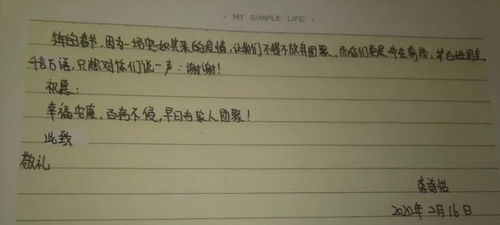 · MY SIMPLE LIFE ·
年的春节，因为一场突如其来的疫情，让我们不得不放弃团聚，而你们更是冲在前线，
千言万语，只想对你们说一声：谢谢！
祝愿：
幸福安康，百病不侵，早日与家人团聚！
此致
敬礼
李
2020年2月16日